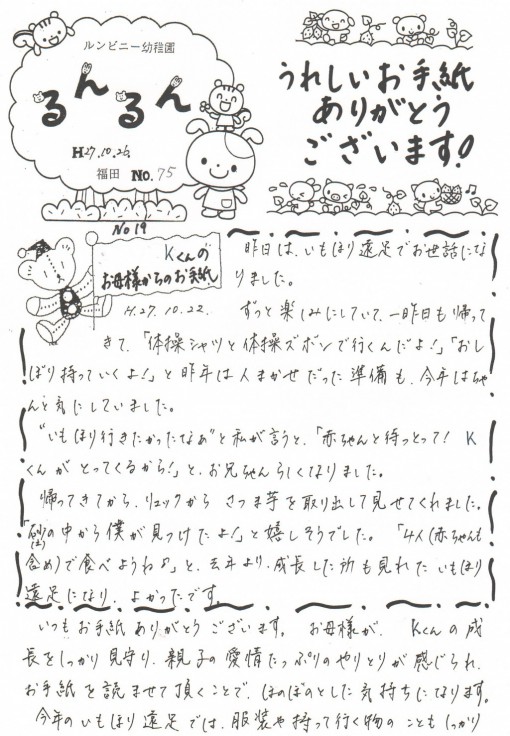 ルンビニー幼稚園
るんるん
H27.10.26.
福田 No.75
うれしいお手紙
ありがとう
ございます!
No 19
Kくんの
お母様からのお手紙
H.27.10.22.
昨日は、いもほり遠足でお世話にな
りました。
ずっと楽しみにしていて、一昨日も帰って
きて、「体操シャツと体操ズボンで行くんだよ!」「おし
ぼり持っていくよ!」と昨年は人まかせだった準備も、今年はちゃ
んと気にしていました。
"いもほり行きたかったなぁ"と私が言うと、「赤ちゃんと待っとって! K
くんが とってくるから!」と、お兄ちゃんらしくなりました。
帰ってきてから、リュックから さつま芋を取り出して見せてくれました。
「砂(土)の中から僕が見つけたよ!」と嬉しそうでした。 「4人(赤ちゃんも
含め)で食べようね♪」と、去年より、成長した所も見れた いもほり
遠足になり、よかったです。
いつもお手紙ありがとう ございます。 お母様が、 Kくんの成
長をしっかり見守り、親子の愛情たっぷりのやりとりが感じられ、
お手紙を読ませて頂くことで、ほのぼのとした気持ちになります。
今年のいもほり遠足では、服装や持って行く物の ことも しっかり